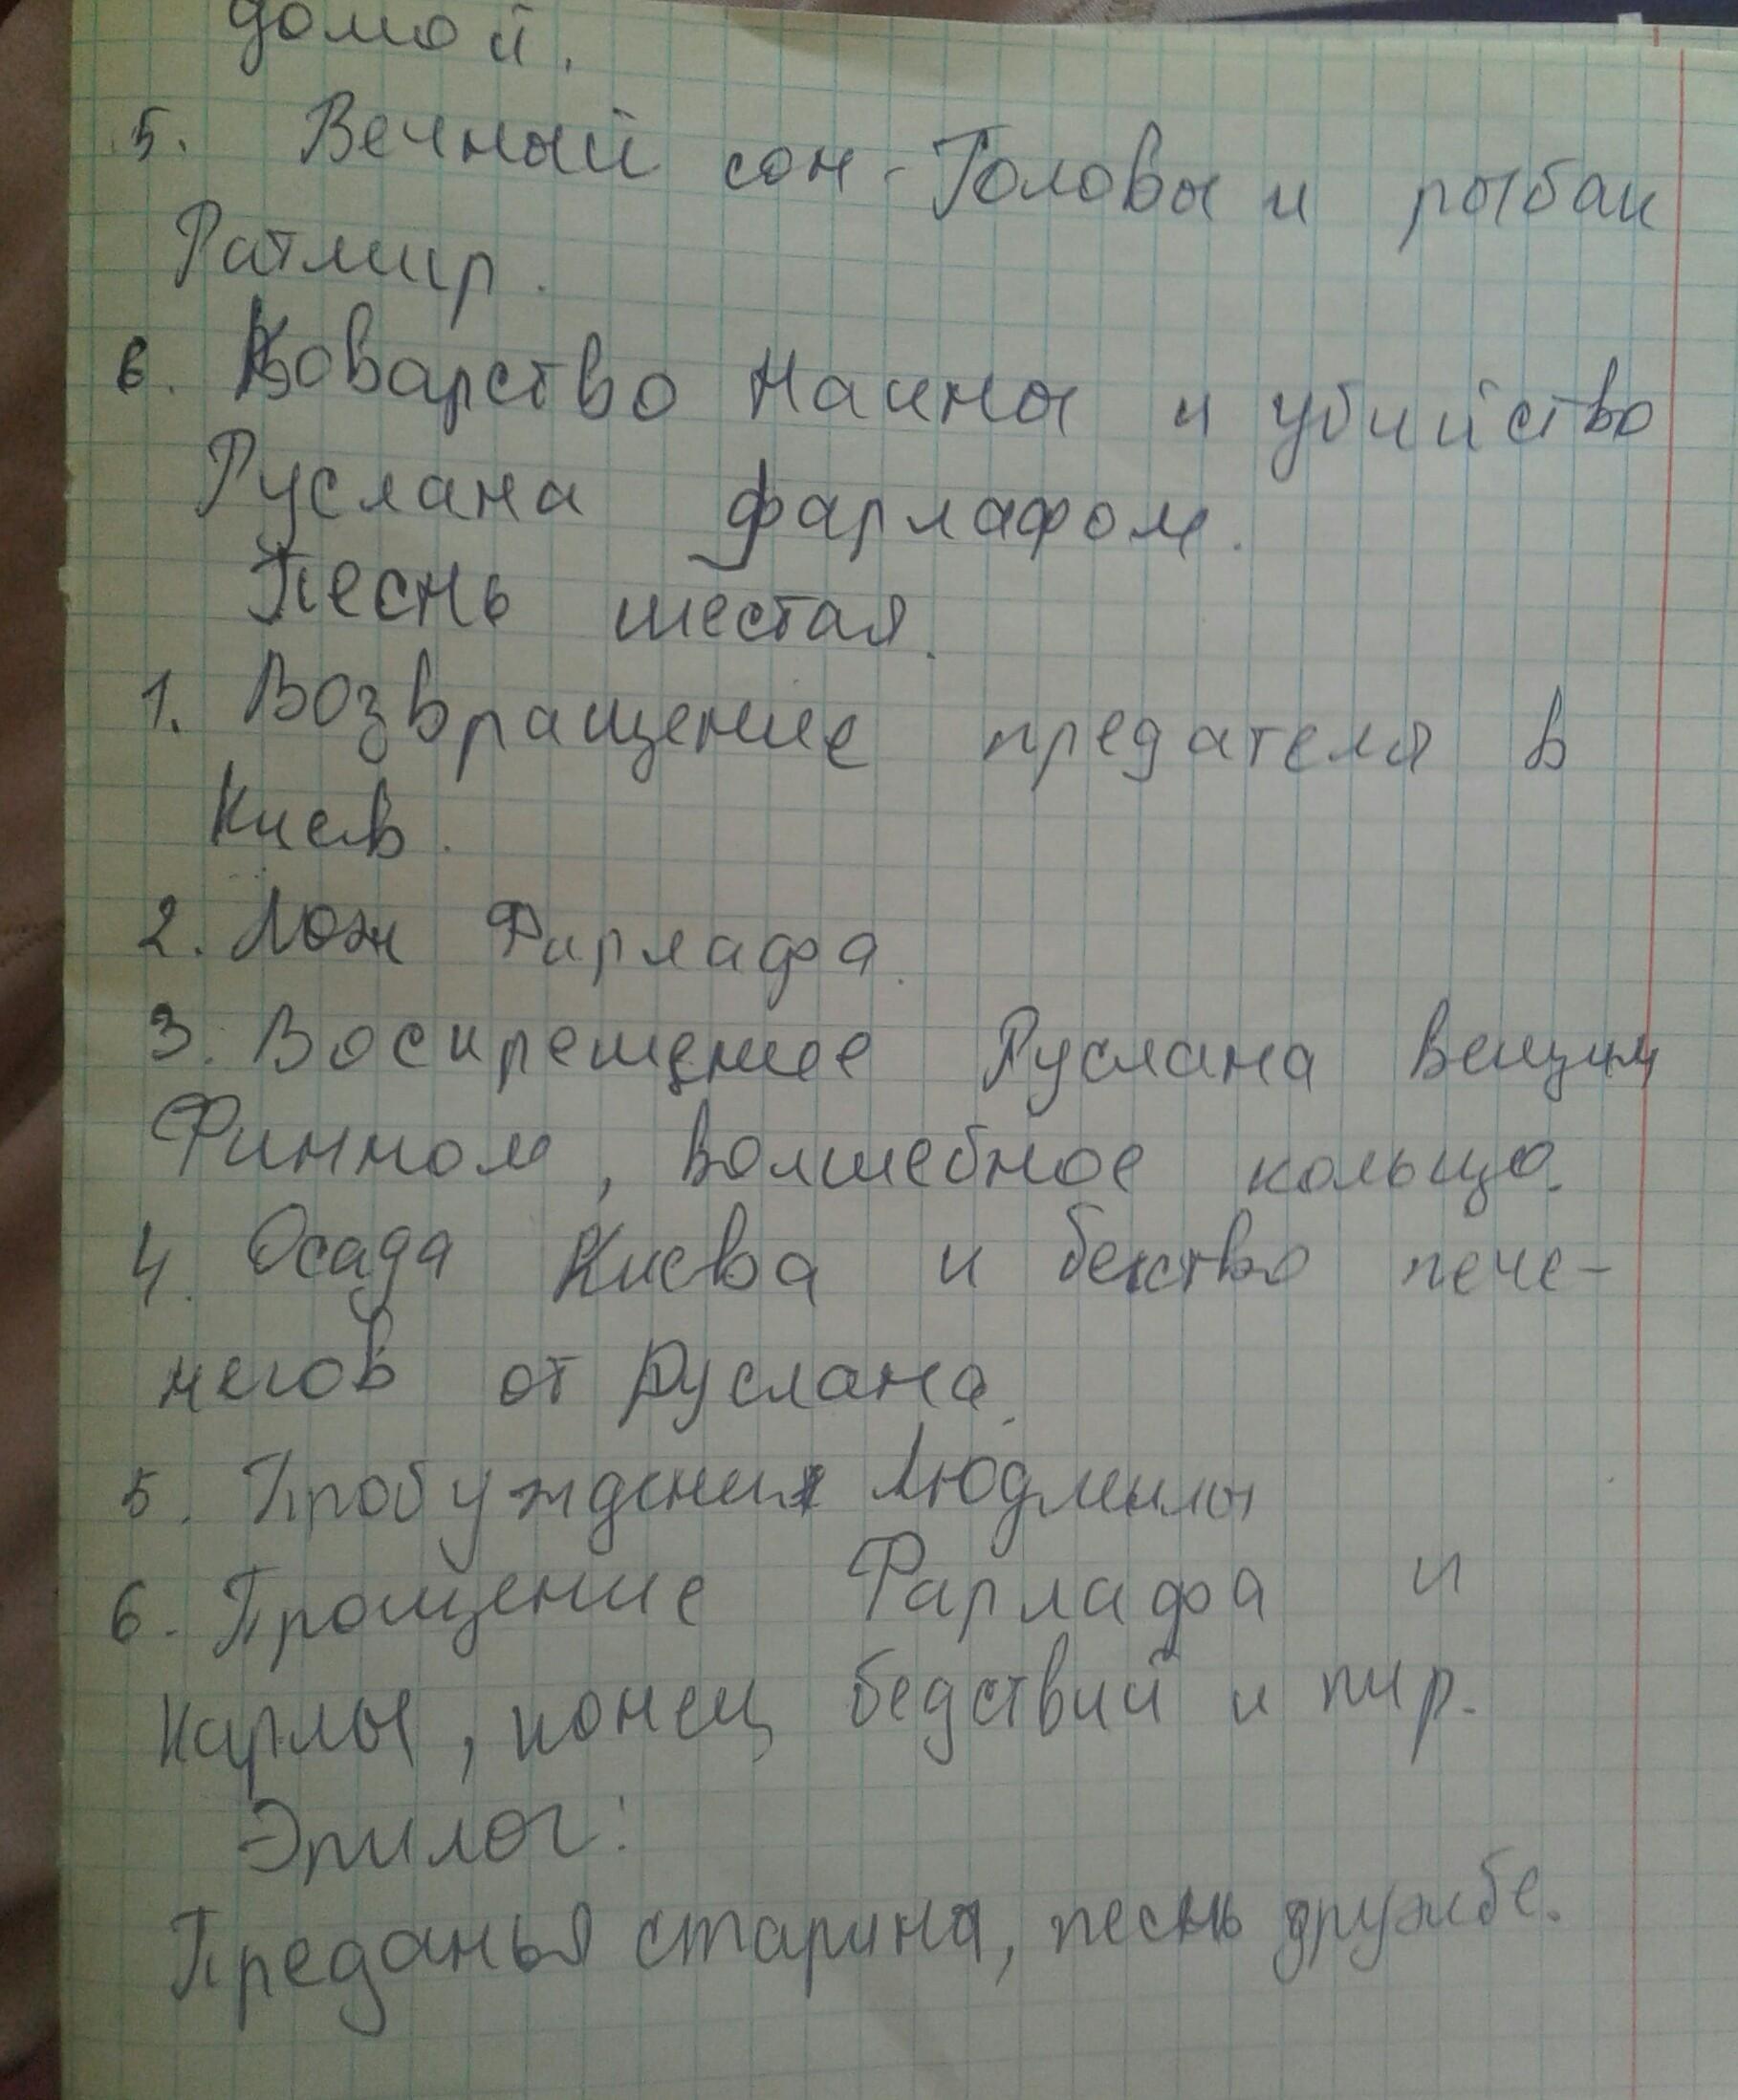 домой.
5. Вечный сон - Головы и рыбак
Ратмир.
6. Коварство Наины и убийство
Руслана фарлафом.
Песнь шестая.
1. Возвращение предателя в
Киев.
2. Лож Фарлафа.
3. Воскрешение Руслана вещим
Финном, волшебное кольцо.
4. Осада Киева и бекство пече-
негов от Руслана.
5. Пробуждения Людмилы
6. Прощение Фарлафа и
карлы, конец бедствий и пир.
Эпилог:
Преданья старина, песнь дружбе.